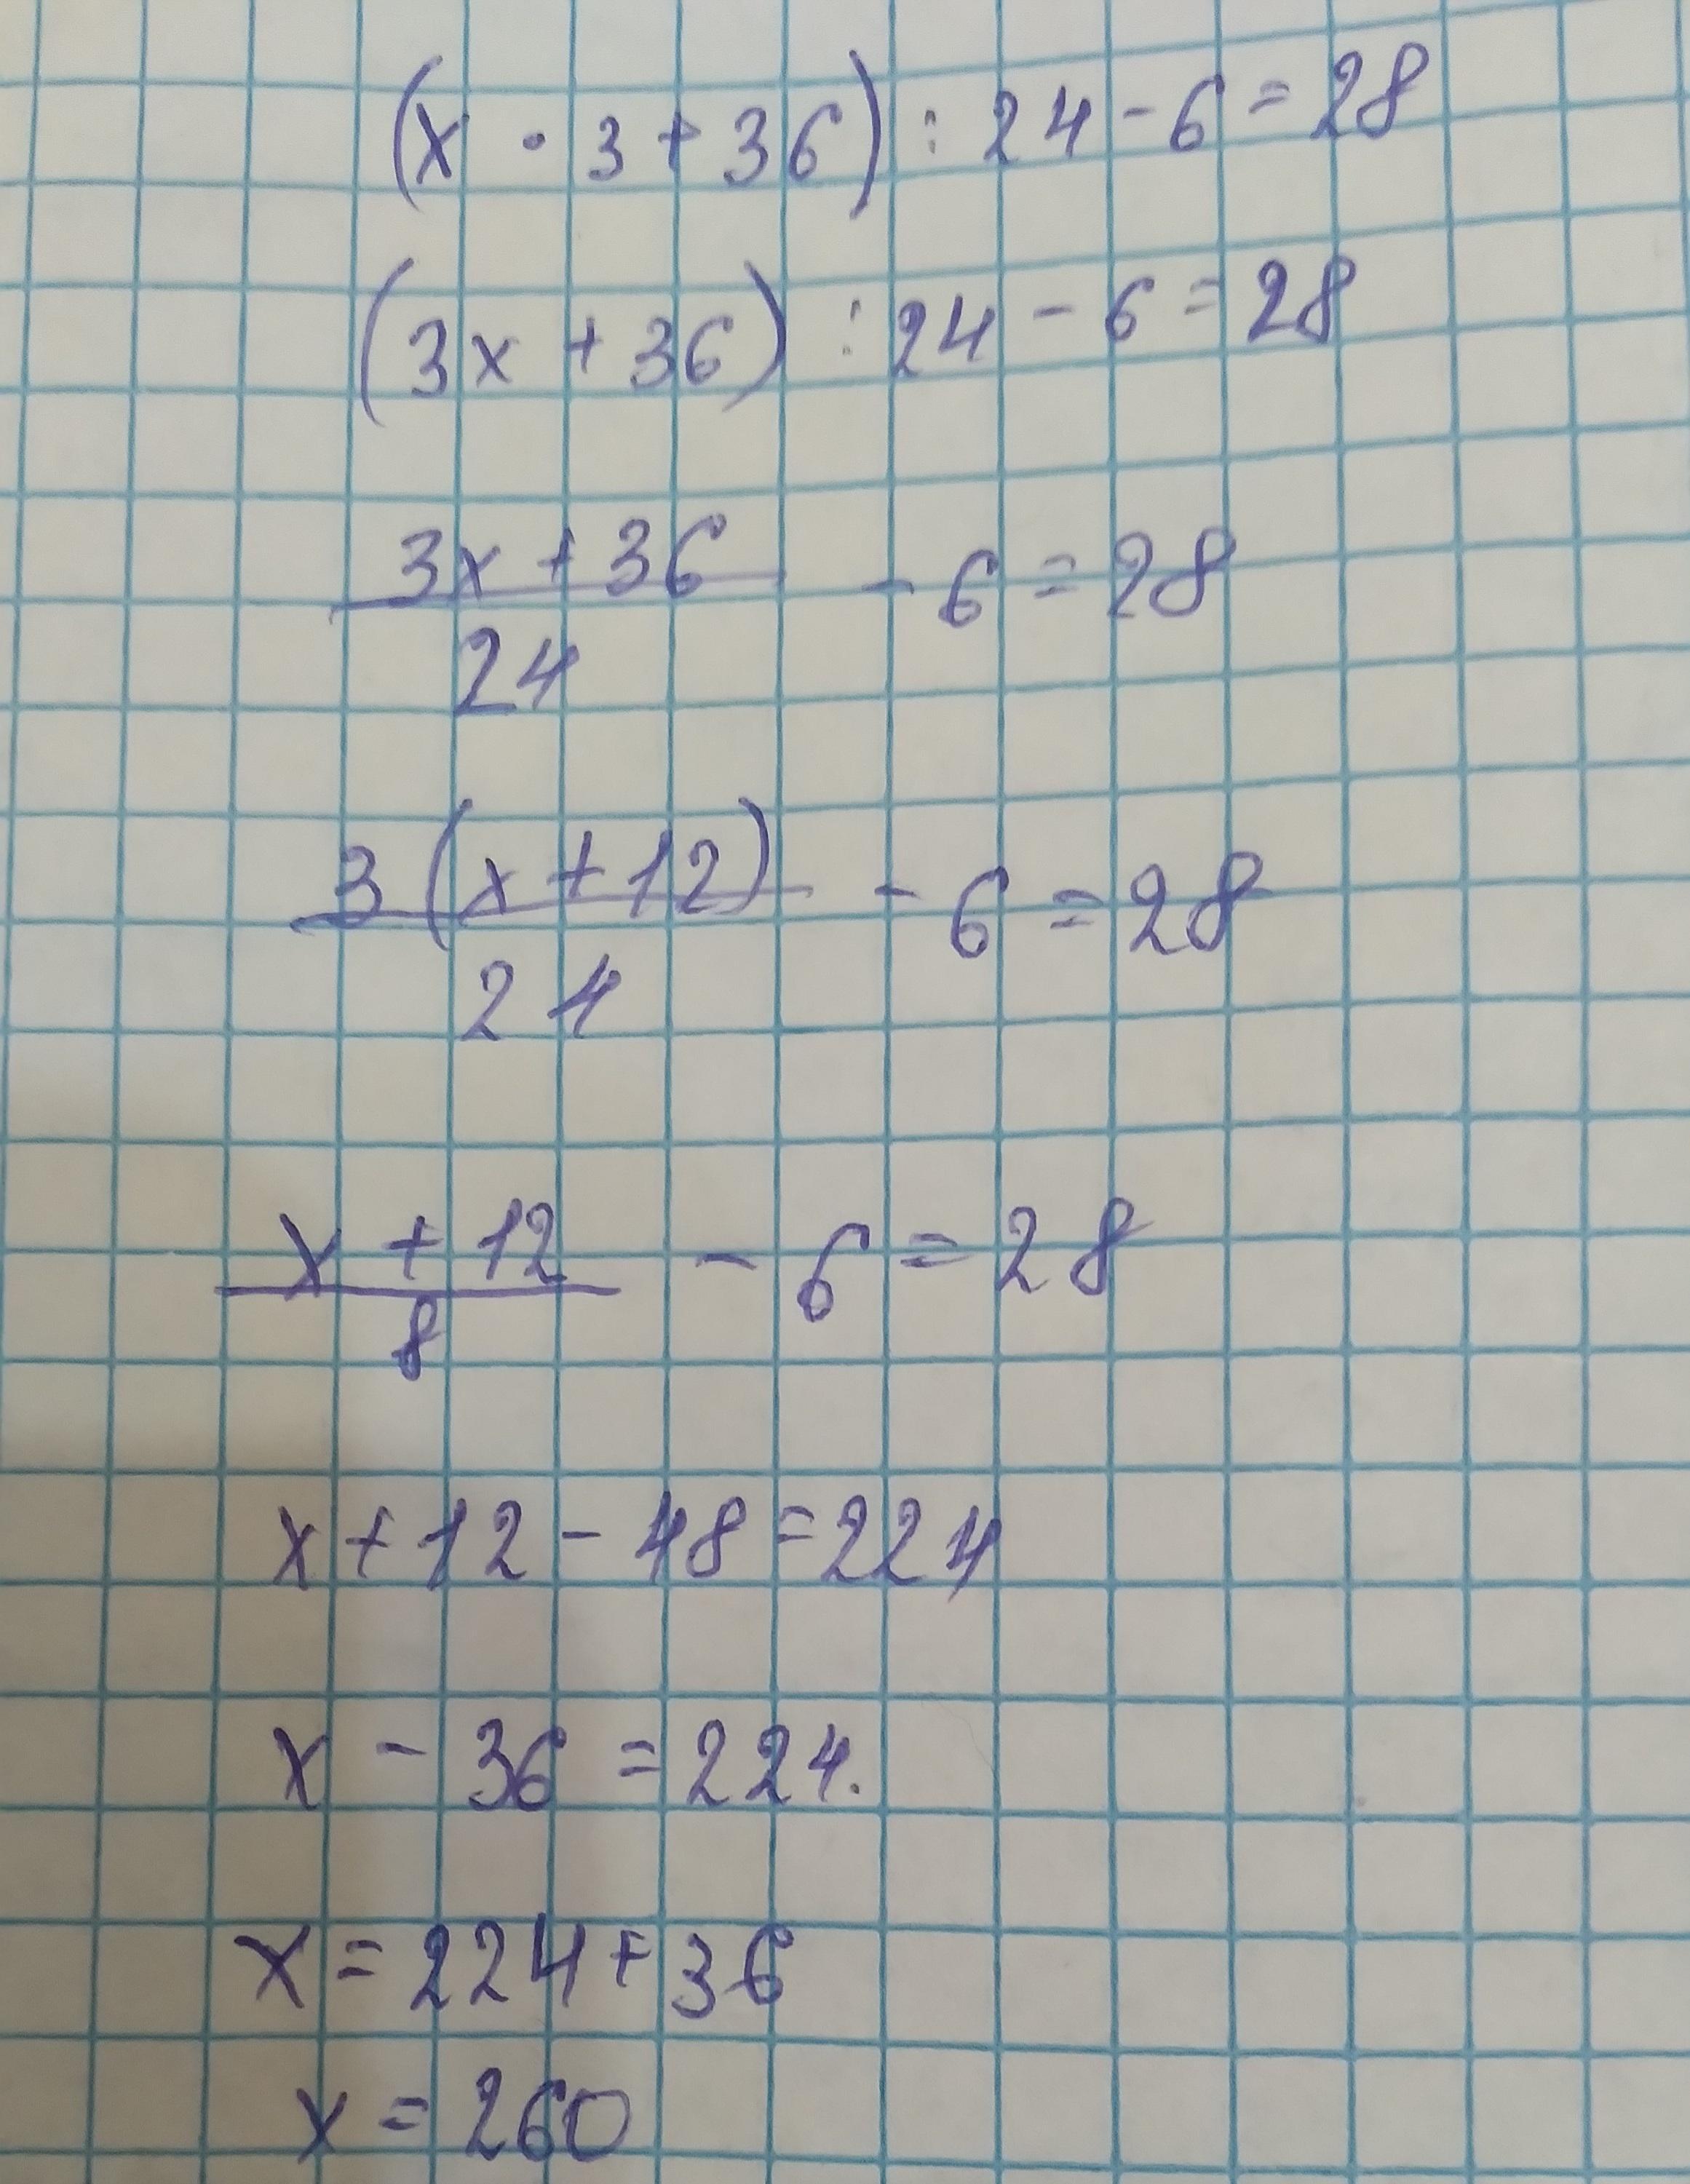 (x · 3 + 36) : 24 - 6 = 28
(3x + 36) : 24 - 6 = 28
3x + 36
24
- 6 = 28
3 (x + 12)
24
- 6 = 28
x + 12
8
- 6 = 28
x + 12 - 48 = 224
x - 36 = 224.
x = 224 + 36
x = 260